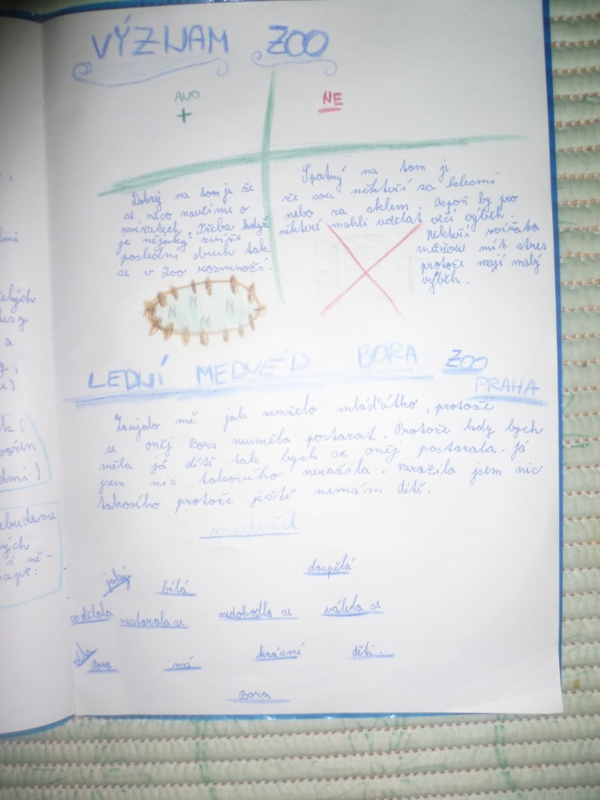 VÝZNAM ZOO
ANO
+
NE
Dobrý na tom je že
se něco naučíme o
zvířatech. Třeba když
je nějaký zvíře
poslední druh tak
se v zoo rozmnoží.
Špatný na tom je
že sou někteří za klecemi
nebo za sklem. Aspoň by pro
někteří mohli udělat věčí výběh.
Některí zvířata
můžou mít stres
protože mají malý
výběh.
LEDNÍ MEDVĚD BORA ZOO
PRAHA
Zaujalo mě jak zemřelo mláďátko, protože
se oněj Bora neuměla postarat. Protože kdy bych
měla já dítě tak bych se oněj postarala. Já
jsem nic takového nezažila. Nezažila jsem nic
takového protože ještě nemám dítě.
medvěd
bílá
dospělá
nestarala se
nedohodla se
válela se
Bora
má
krásní
děti.
Bora